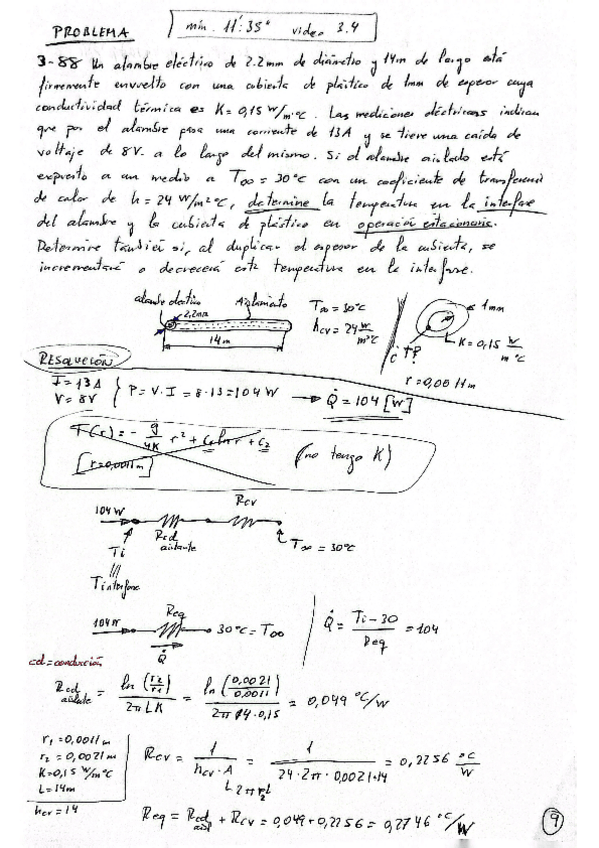 PROBLEMA
min. 11':35" video 3.4
3-88 Un alambre eléctrico de 2.2mm de diámetro y 14m de largo está
firmemente envuelto con una cubierta de plástico de 1mm de espesor cuya
conductividad térmica es K=0,15 W/m·°C. Las mediciones eléctricas indican
que por el alambre pasa una corriente de 13A y se tiene una caída de
voltaje de 8V. a lo largo del mismo. Si el alambre aislado está
expuesto a un medio a T∞=30°C con un coeficiente de transferencia
de calor de h=24 W/m²°C, determine la temperatura en la interfase
del alambre y la cubierta de plástico en operación estacionaria.
Determine también si, al duplicar el espesor de la cubierta, se
incrementará o decrecerá esta temperatura en la interfase.
alambre eléctrico
2,2mm
Aislamiento
14m
T∞=30°C
hcv=24 W/m²°C
1mm
K=0,15 W/m°C
¿T?
r=0,0011m
RESOLUCIÓN
I=13A
V=8V
P=V·I=8·13=104W → Q̇=104[W]
T(r)=-ġ/4K r²+C₁lnr+C₂
[r=0,0011m]
(no tengo K)
104W
Rcd aislante
Rcv
Ti
T∞=30°C
Tinterfase
104W
Req
30°C=T∞
Q̇
Q̇=Ti-30/Req=104
cd=conducción
Rcd aislante = ln(r2/r1)/2πLK = ln(0,0021/0,0011)/2π 14·0,15 = 0,049 °C/W
r1=0,0011m
r2=0,0021m
K=0,15 W/m°C
L=14m
hcv=14
Rcv = 1/hcv·A = 1/24·2π·0,0021·14 = 0,2256 °C/W
2πr2L
Req = Rcd aisl + Rcv = 0,049+0,2256=0,2746 °C/W
9